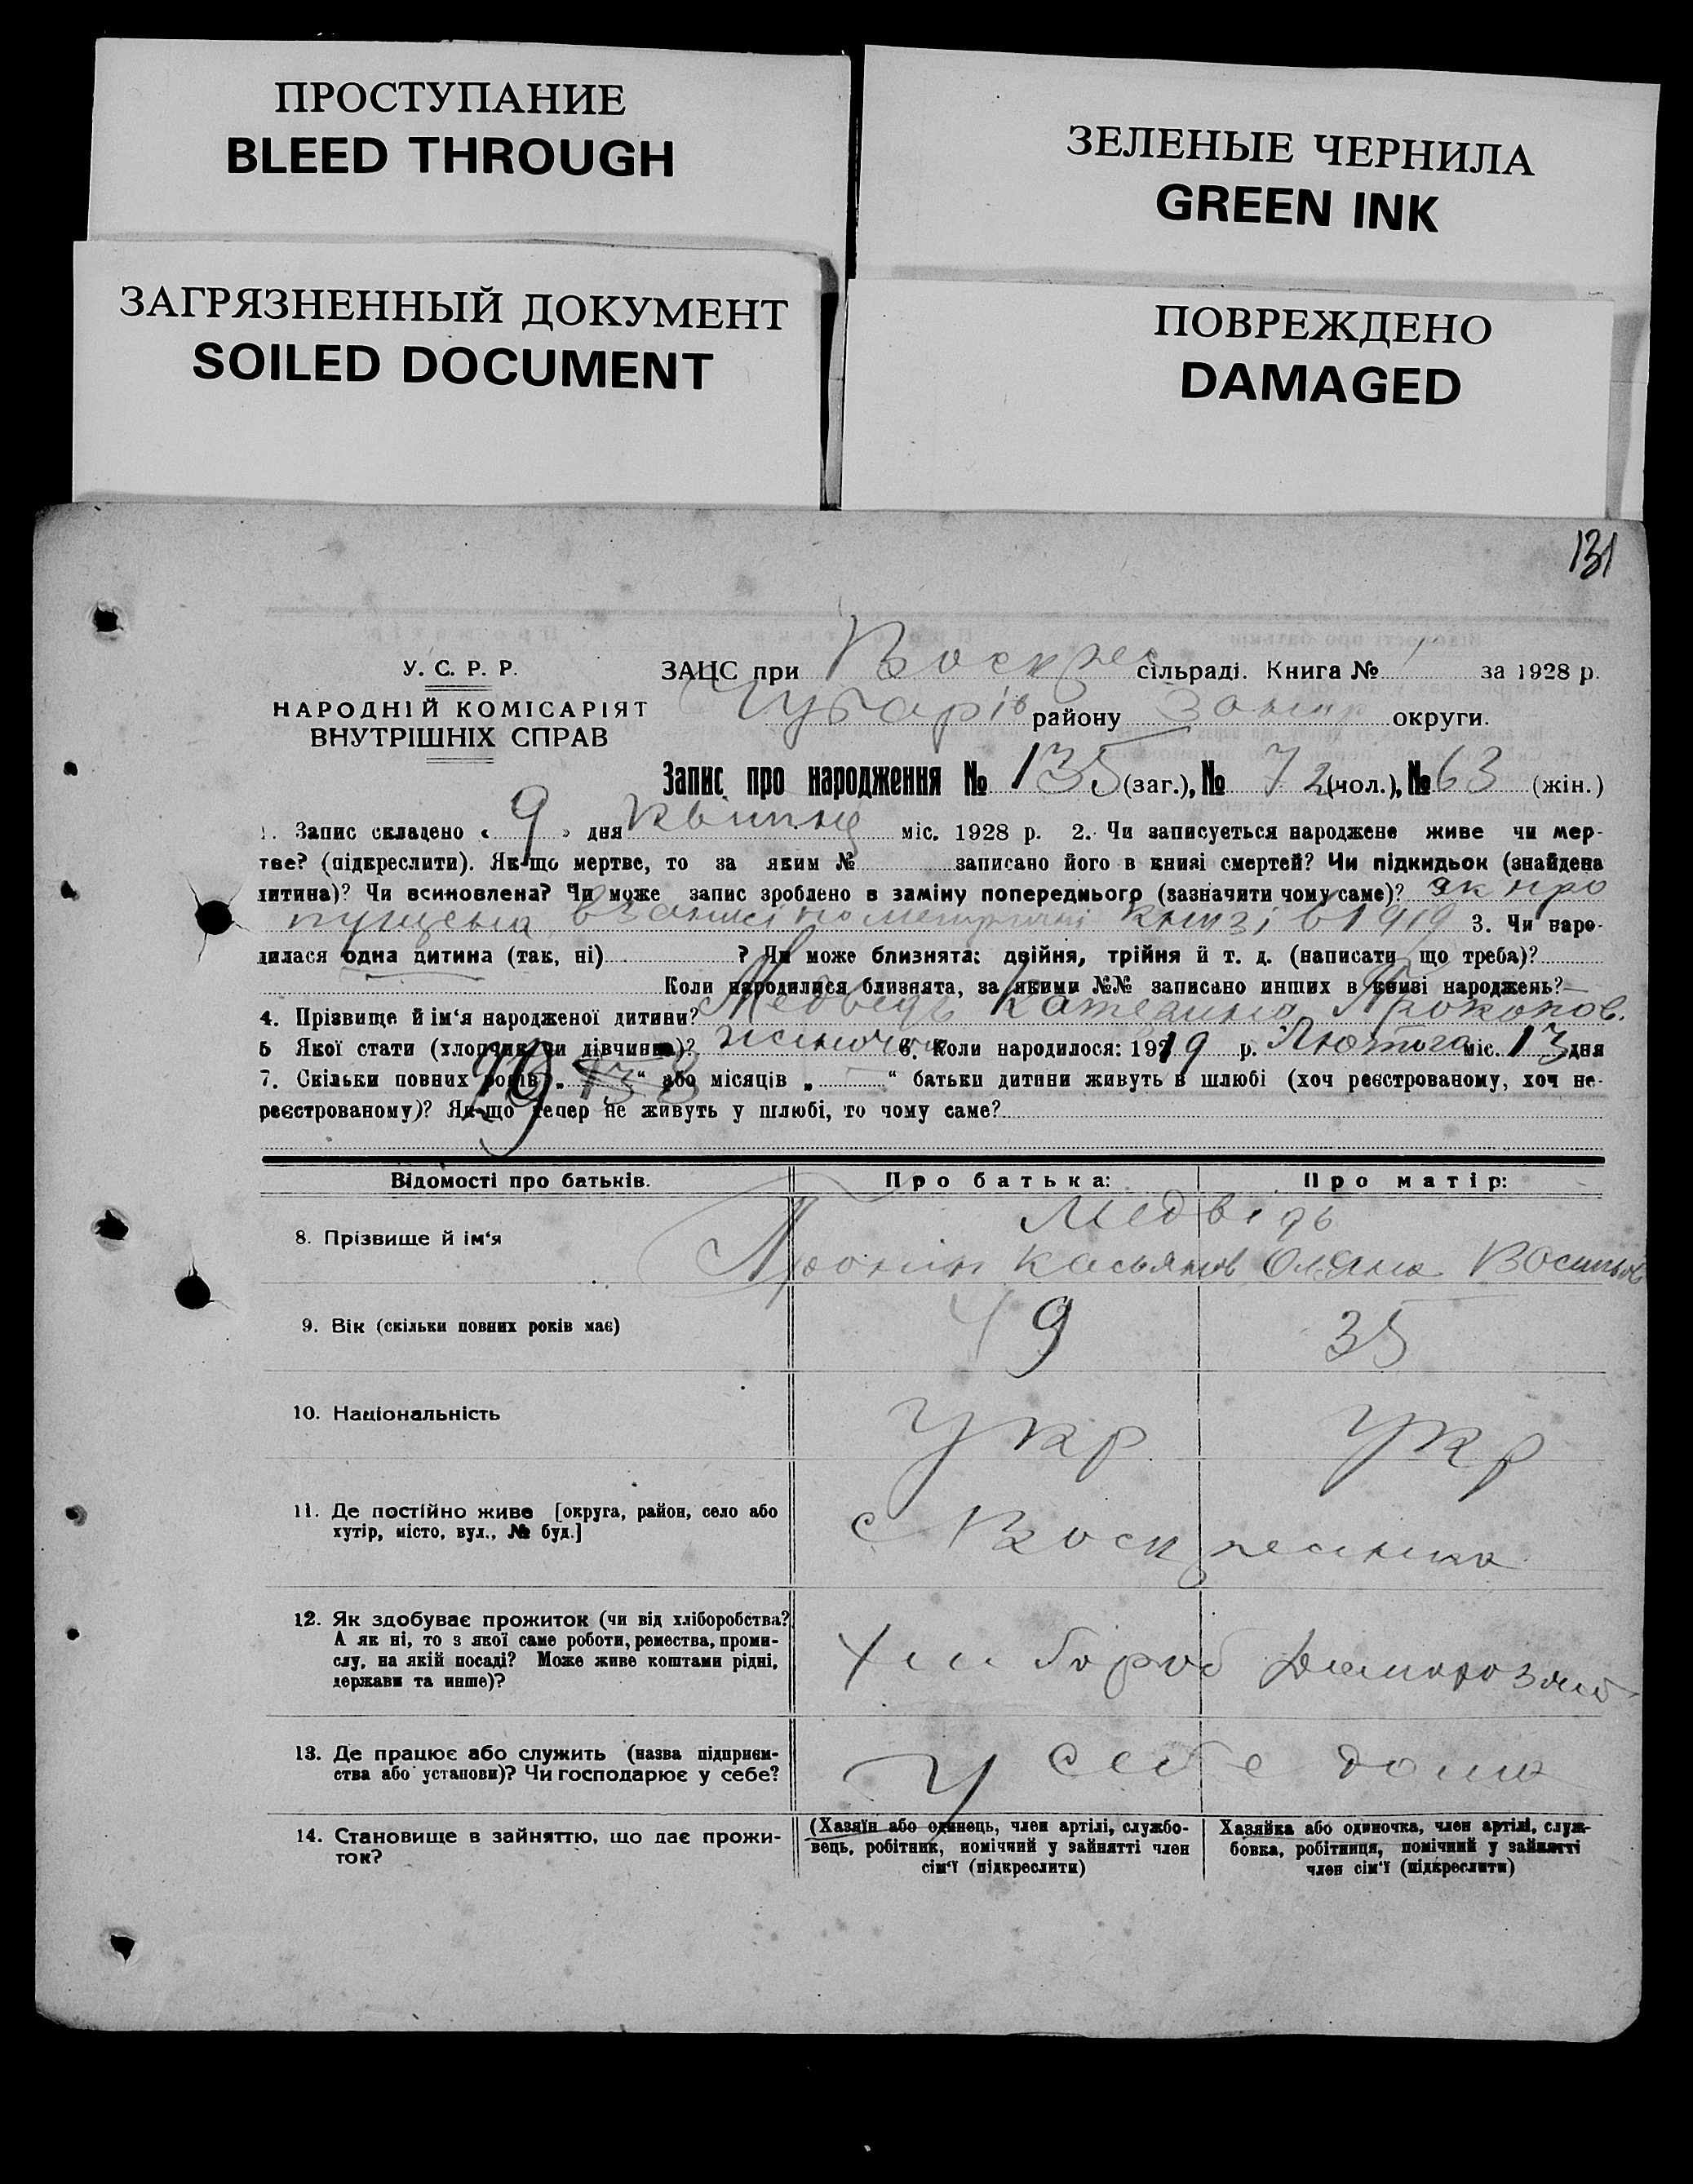 ПРОСТУПАНИЕ
BLEED THROUGH
ЗЕЛЕНЫЕ ЧЕРНИЛА
GREEN INK
ЗАГРЯЗНЕННЫЙ ДОКУМЕНТ
SOILED DOCUMENT
ПОВРЕЖДЕНО
DAMAGED
131
У. С. Р. Р.
НАРОДНІЙ КОМІСАРІЯТ
ВНУТРІШНІХ СПРАВ
ЗАЦС при Воскрес сільраді. Книга № 1 за 1928 р.
Чубарів району Запор округи.
Запис про народження № 135 (заг.), № 72 (чол.), № 63 (жін.)
1. Запис складено « 9 » дня Квітня міс. 1928 р. 2. Чи записується народжене живе чи мер-
тве? (підкреслити). Якщо мертве, то за яким № записано його в книзі смертей? Чи підкидьок (знайдена
дитина)? Чи всиновлена? Чи може запис зроблено в заміну попереднього (зазначити чому саме)? як про
пущена в записі по метричні книзі в 1919 3. Чи наро-
дилася одна дитина (так, ні) ? Чи може близнята: двійня, трійня й т. д. (написати що треба)?
Коли народилися близнята, за якими №№ записано инших в книзі народжень? —
4. Прізвище й ім'я народженої дитини? Медведь Катерина Прокопов.
5 Якої стати (хлопчик чи дівчинка)? жіночої 6. Коли народилося: 1919 р. Лютого міс. 13 дня
7. Скільки повних років „ “ або місяців „ “ батьки дитини живуть в шлюбі (хоч реєстрованому, хоч не-
реєстрованому)? Якщо тепер не живуть у шлюбі, то чому саме?
Відомості про батьків. Про батька: Про матір:
8. Прізвище й ім'я
Медведь
Касьянов Оляна Восильов
9. Вік (скільки повних років має) 49 35
10. Національність Укр Укр
11. Де постійно живе [округа, район, село або
хутір, місто, вул., № буд.]
с Воскресенка
12. Як здобуває прожиток (чи від хліборобства?
А як ні, то з якої саме роботи, ремества, проми-
слу, на якій посаді? Може живе коштами рідні,
держави та инше)?
Хлибороб
13. Де працює або служить (назва підприєм-
ства або установи)? Чи господарює у себе?
У себе дома
14. Становище в зайняттю, що дає прожи-
ток?
(Хазяїн або одинець, член артілі, службо-
вець, робітник, помічний у зайнятті член
сім'ї (підкреслити)
Хазяйка або одиночка, член артілі, служ-
бовка, робітниця, помічний у зайнятті
член сім'ї (підкреслити)